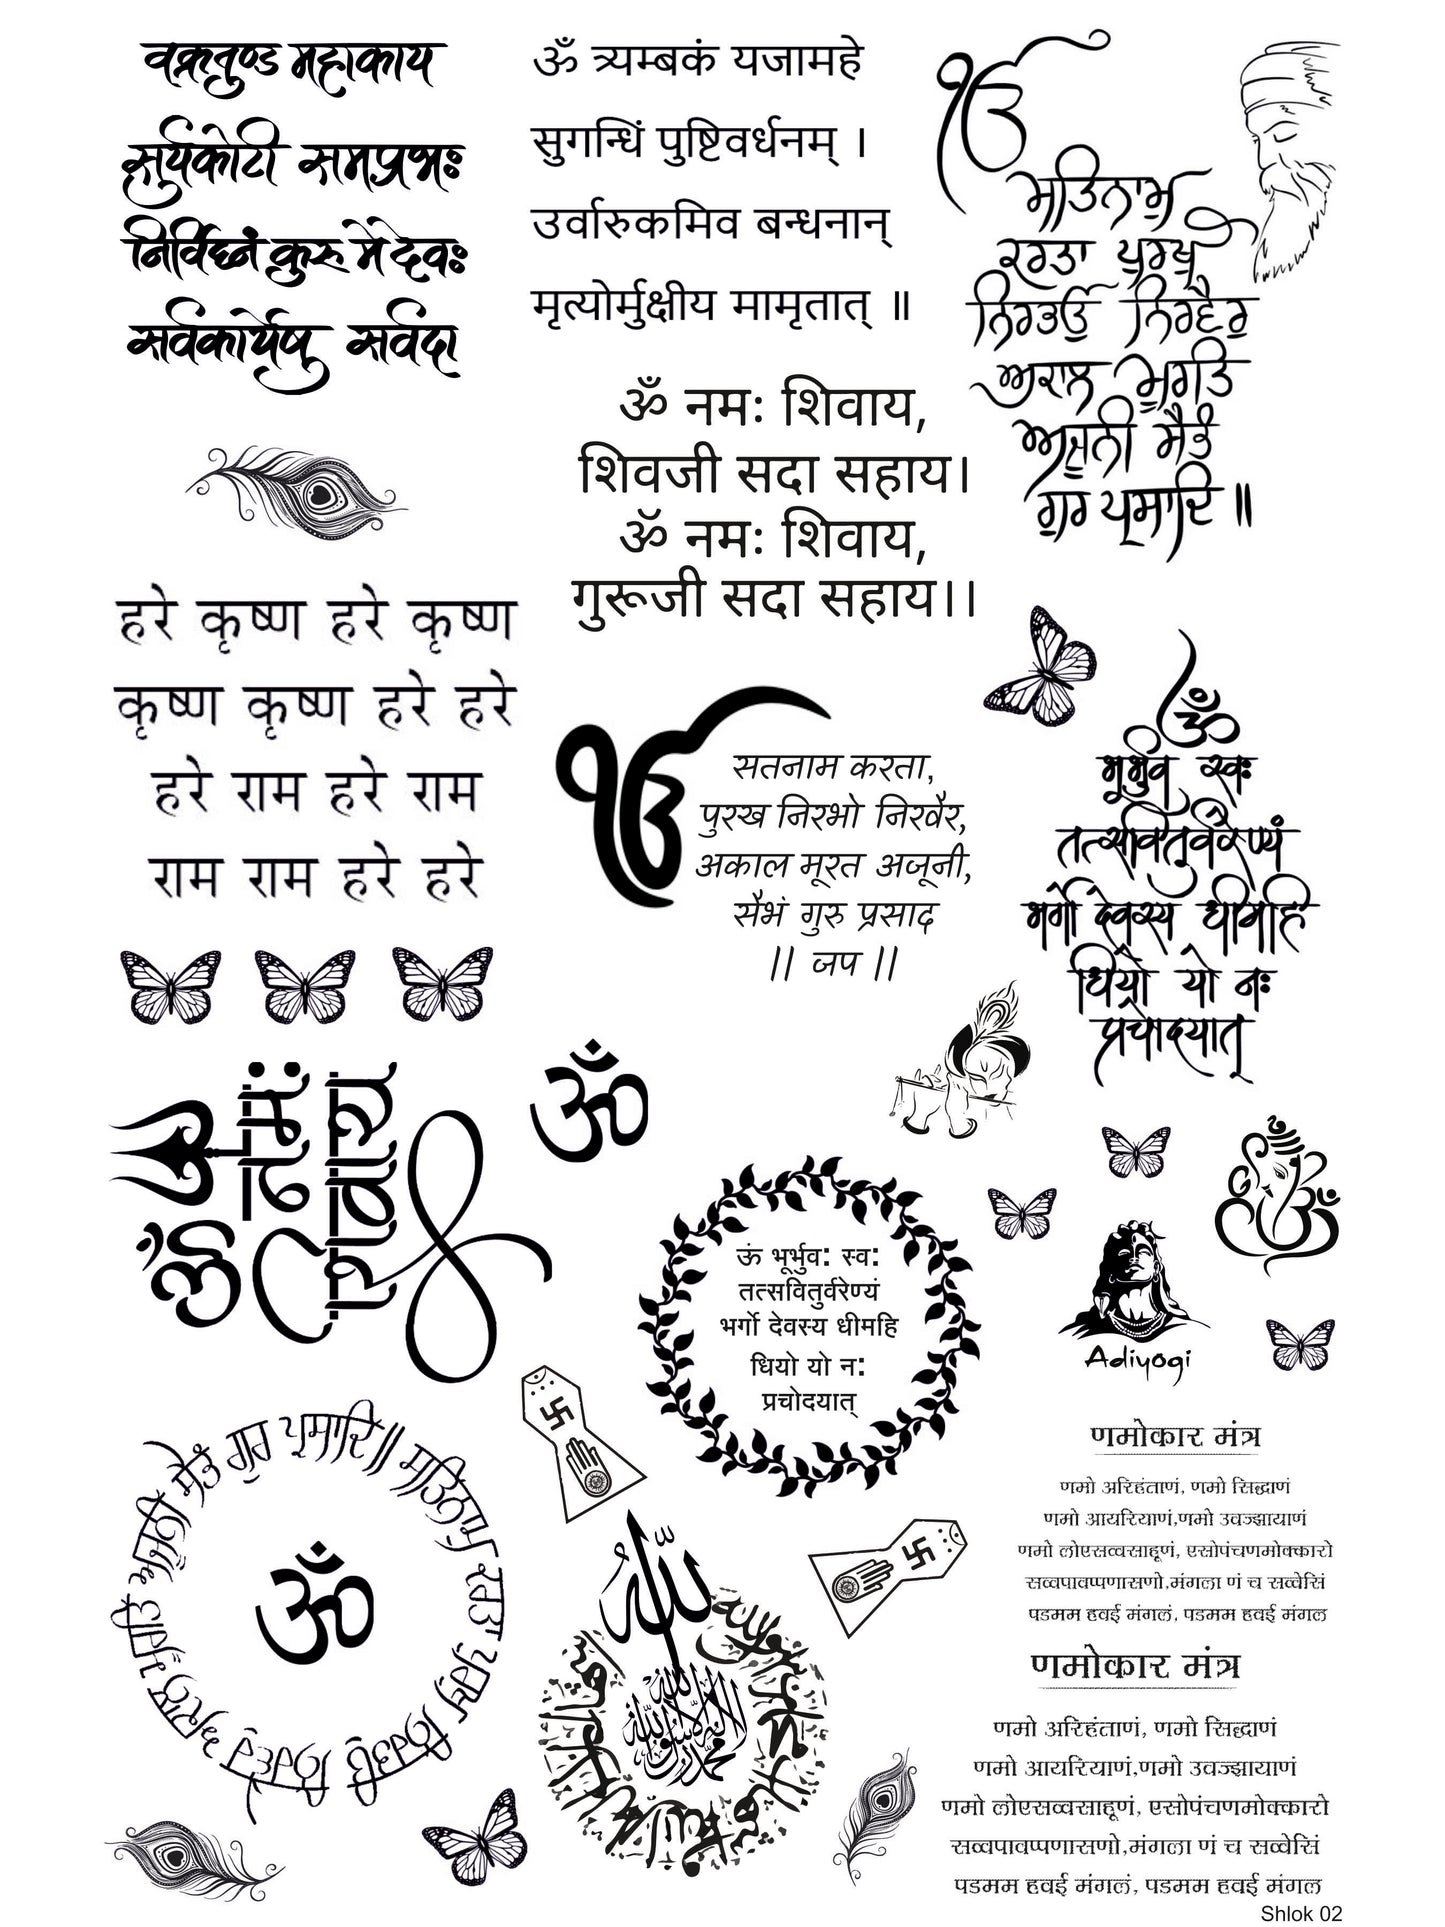 वक्रतुण्ड महाकाय
सुर्यकोटी समप्रभः
निर्विघ्नं कुरु मे देवः
सर्वकार्येषु सर्वदा
ॐ त्र्यम्बकं यजामहे
सुगन्धिं पुष्टिवर्धनम् ।
उर्वारुकमिव बन्धनान्
मृत्योर्मुक्षीय मामृतात् ॥
ੴ
ਸਤਿਨਾਮੁ
ਕਰਤਾ ਪੁਰਖੁ
ਨਿਰਭਉ ਨਿਰਵੈਰੁ
ਅਕਾਲ ਮੂਰਤਿ
ਅਜੂਨੀ ਸੈਭੰ
ਗੁਰ ਪ੍ਰਸਾਦਿ ॥
ॐ नमः शिवाय,
शिवजी सदा सहाय।
ॐ नमः शिवाय,
गुरूजी सदा सहाय।।
हरे कृष्ण हरे कृष्ण
कृष्ण कृष्ण हरे हरे
हरे राम हरे राम
राम राम हरे हरे
ੴ
सतनाम करता,
पुरख निरभो निरवैर,
अकाल मूरत अजूनी,
सैभं गुरु प्रसाद
|| जप ||
ॐ
भूर्भुव स्वः
तत्सवितुर्वरेण्यं
भर्गो देवस्य धीमहि
धियो यो नः
प्रचोदयात्
ॐ नमः
शिवाय
ॐ
ऊं भूर्भुव: स्व:
तत्सवितुर्वरेण्यं
भर्गो देवस्य धीमहि
धियो यो न:
प्रचोदयात्
ॐ
Adiyogi
ਸਤਿਨਾਮੁ ਕਰਤਾ ਪੁਰਖੁ ਨਿਰਭਉ ਨਿਰਵੈਰੁ ਅਕਾਲ ਮੂਰਤਿ ਅਜੂਨੀ ਸੈਭੰ ਗੁਰ ਪ੍ਰਸਾਦਿ ॥
ॐ
الله
لا اله الا الله محمد رسول الله
णमोकार मंत्र
णमो अरिहंताणं, णमो सिद्धाणं
णमो आयरियाणं,णमो उवज्झायाणं
णमो लोएसव्वसाहूणं, एसोपंचणमोक्कारो
सव्वपावप्पणासणो,मंगला णं च सव्वेसिं
पडमम हवई मंगलं, पडमम हवई मंगल
णमोकार मंत्र
णमो अरिहंताणं, णमो सिद्धाणं
णमो आयरियाणं,णमो उवज्झायाणं
णमो लोएसव्वसाहूणं, एसोपंचणमोक्कारो
सव्वपावप्पणासणो,मंगला णं च सव्वेसिं
पडमम हवई मंगलं, पडमम हवई मंगल
Shlok 02